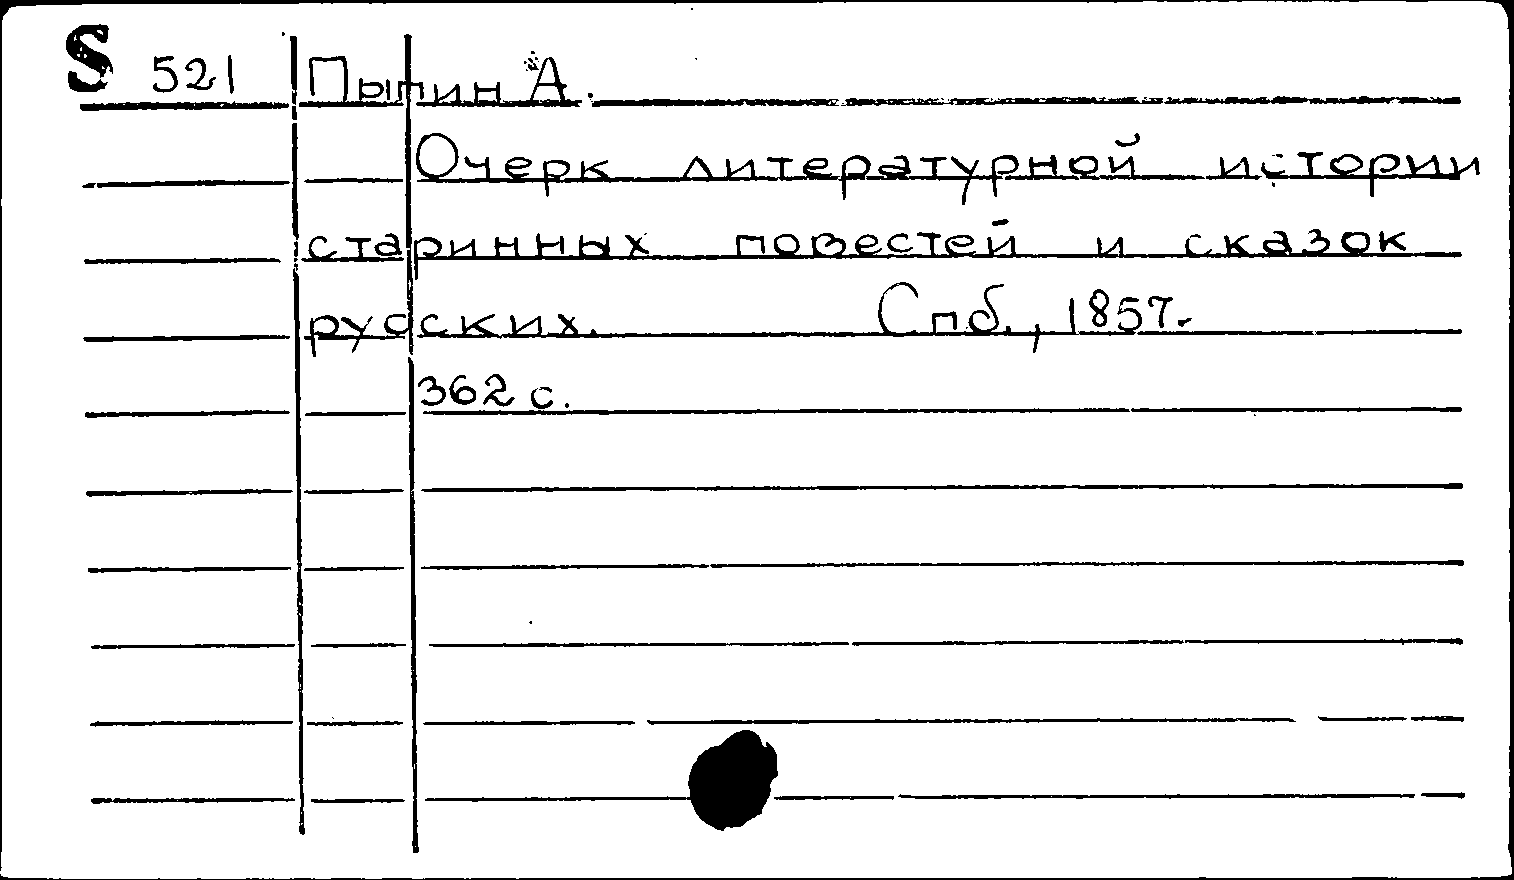 S 521 Пыпин А.
Очерк литературной истории
старинных повестей и сказок
русских. Спб., 1857.
362 с.